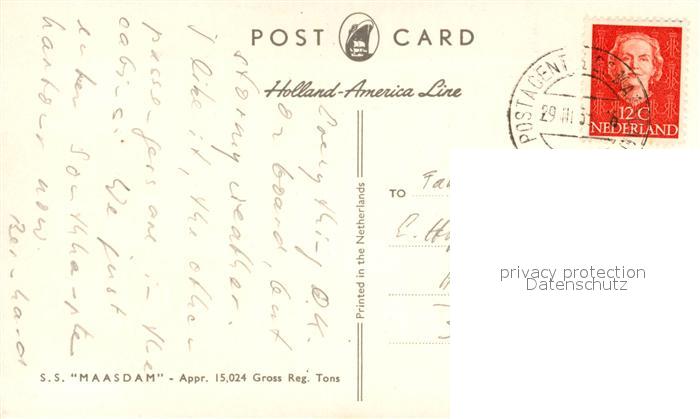 POST CARD
Holland-America Line
Everything O.K.
on board, but
stormy weather.
I like it, the other
passengers are in the
cabins. We just
enter Southhampton
harbour now.
Bernhard
Printed in the Netherlands
TO
E.
S.S. "MAASDAM" - Appr. 15,024 Gross Reg. Tons
POSTAGENT
29 III 5
12 C
NEDERLAND
privacy protection
Datenschutz